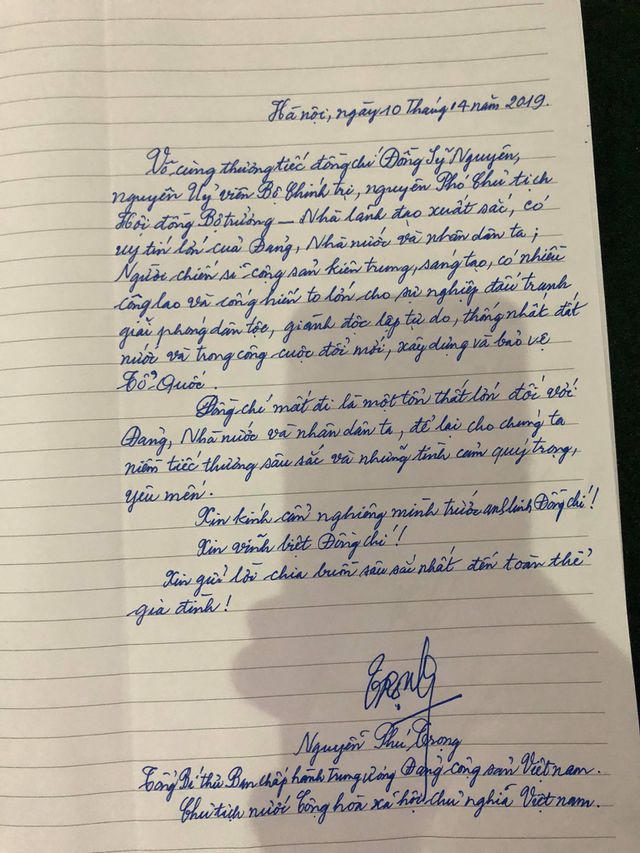 Hà nội, ngày 10 Tháng 4 năm 2019.
Vô cùng thương tiếc đồng chí Đồng Sỹ Nguyên,
nguyên Uỷ viên Bộ Chính trị, nguyên Phó Chủ tịch
Hội đồng Bộ trưởng — Nhà lãnh đạo xuất sắc, có
uy tín lớn của Đảng, Nhà nước và nhân dân ta;
Người chiến sĩ cộng sản kiên trung, sáng tạo, có nhiều
công lao và cống hiến to lớn cho sự nghiệp đấu tranh
giải phóng dân tộc, giành độc lập tự do, thống nhất đất
nước và trong công cuộc đổi mới, xây dựng và bảo vệ
Tổ Quốc.
Đồng chí mất đi là một tổn thất lớn đối với
Đảng, Nhà nước và nhân dân ta, để lại cho chúng ta
niềm tiếc thương sâu sắc và những tình cảm quý trọng,
yêu mến.
Xin kính cẩn nghiêng mình trước anh linh Đồng chí!
Xin vĩnh biệt Đồng chí!
Xin gửi lời chia buồn sâu sắc nhất đến toàn thể
gia đình!
Trọng
Nguyễn Phú Trọng
Tổng Bí thư Ban chấp hành Trung ương Đảng cộng sản Việt nam.
Chủ tịch nước Cộng hòa xã hội chủ nghĩa Việt nam.